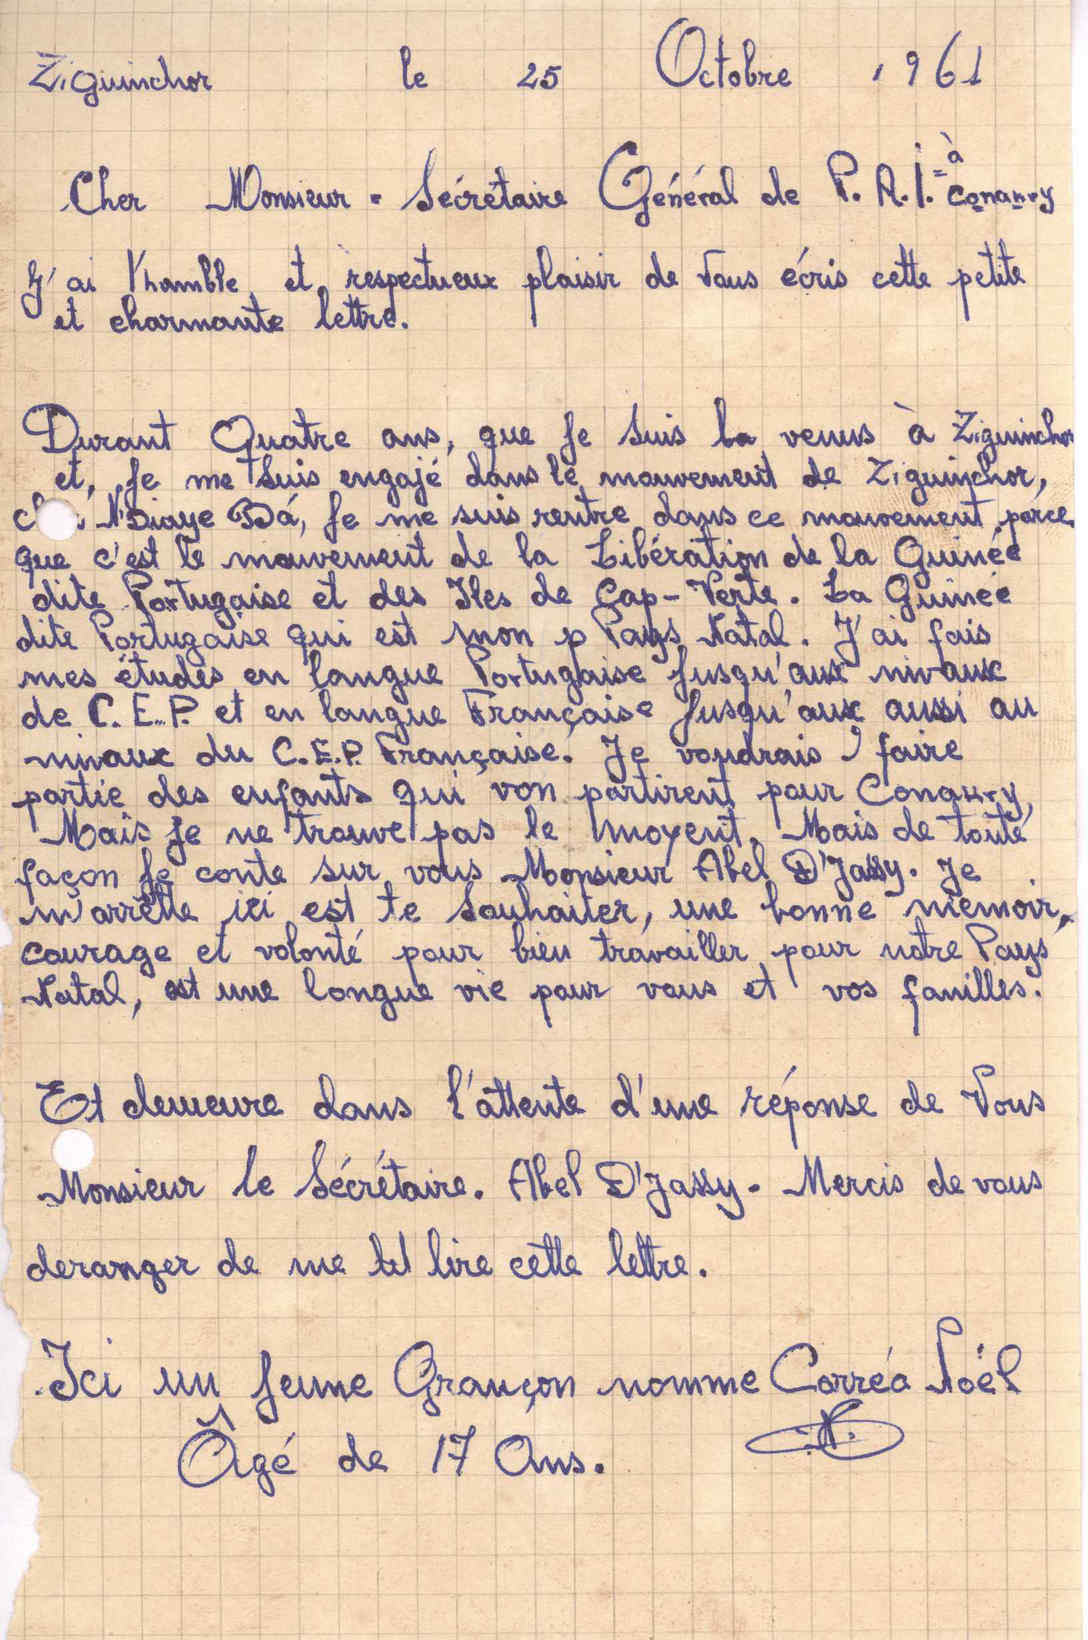 Ziguinchor le 25 Octobre 1961
Cher Monsieur - Sécrétaire Général de P. A. I. = à Conakry
J'ai l'hamble et respectueux plaisir de Vous écris cette petite
et charmante lettre.
Durant Quatre ans, que je suis venus à Ziguinchor
et, je me suis engajé dans le mouvement de Ziguinchor,
N'Diaye Bá, je me suis rentre dans ce mouvement parce
que c'est le mouvement de la Libération de la Guinée
dite Portugaise et des Iles de Cap-Verte. La Guinée
dite Portugaise qui est mon p Pays Natal. J'ai fais
mes études en langue Portugaise jusqu'aux nivaux
de C. E. P. et en langue Française jusqu'aux aussi au
nivaux du C.E.P. Française. Je voudrais faire
partie des enfants qui von partirent pour Conakry,
Mais je ne trouve pas le moyent. Mais de toute
façon je conte sur vous Monsieur Abel D'Jassy. Je
m'arrette ici est te souhaiter, une bonne mémoir,
courage et volonté pour bien travailler pour notre Pays
Natal, est une longue vie pour vous et vos familles.
Et demeure dans l'attente d'une réponse de Vous
Monsieur le Sécrétaire. Abel D'Jassy. Mercis de vous
deranger de me lire cette lettre.
Ici un jeune Grançon nomme Corréa Noël
Âgé de 17 Ans.